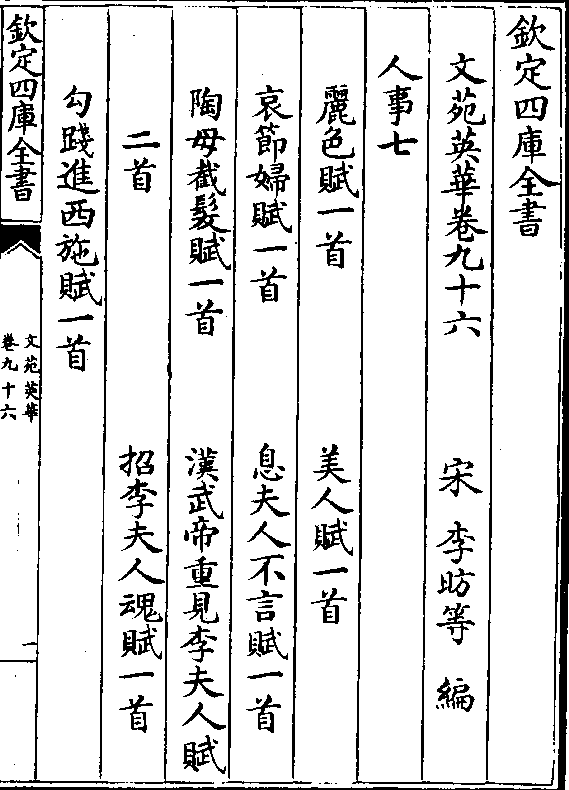 欽定四庫全書
文苑英華卷九十六
宋 李昉等 編
人事七
麗色賦一首 美人賦一首
哀節婦賦一首 息夫人不言賦一首
陶母截髮賦一首 漢武帝重見李夫人賦
二首 招李夫人魂賦一首
勾踐進西施賦一首
欽定四庫全書
文苑英華
卷九十六
一